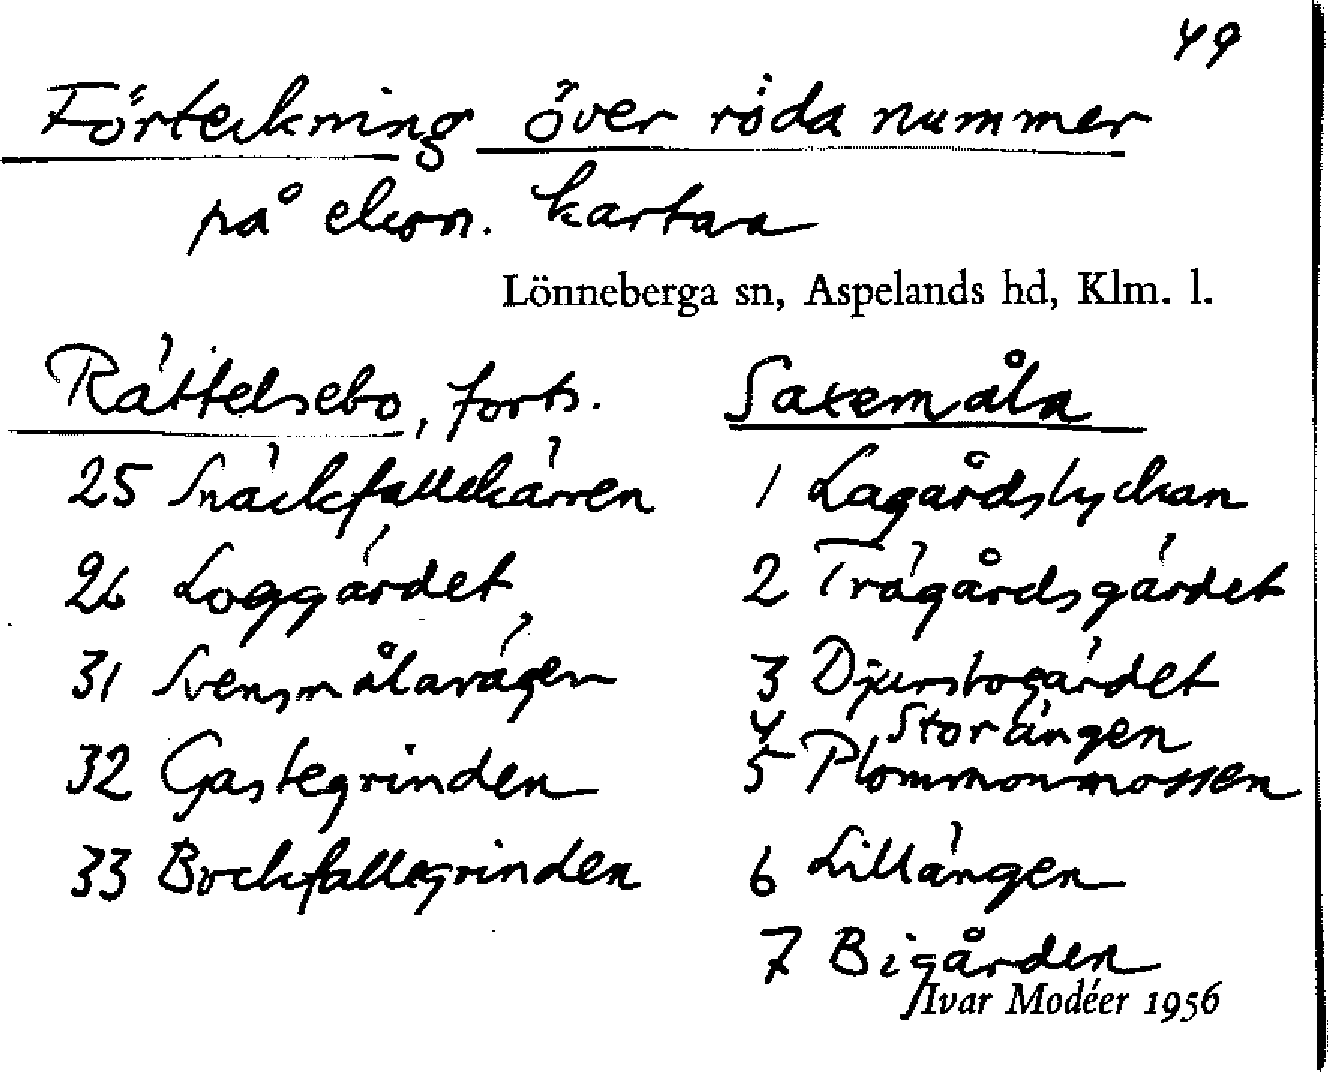 49
Förteckning över röda nummer
på ekon. kartan
Lönneberga sn, Aspelands hd, Klm. l.
Rättelsebo, forts.
25 Snäckfallekärren
26 Loggärdet
31 Svensmålavägen
32 Gastegrinden
33 Bockfallegrinden
Saxemåla
1 Lagårdslyckan
2 Trägårdsgärdet
3 Djurstogärdet
4 Storängen
5 Plommonmossen
6 Lillängen
7 Bigården
Ivar Modéer 1956